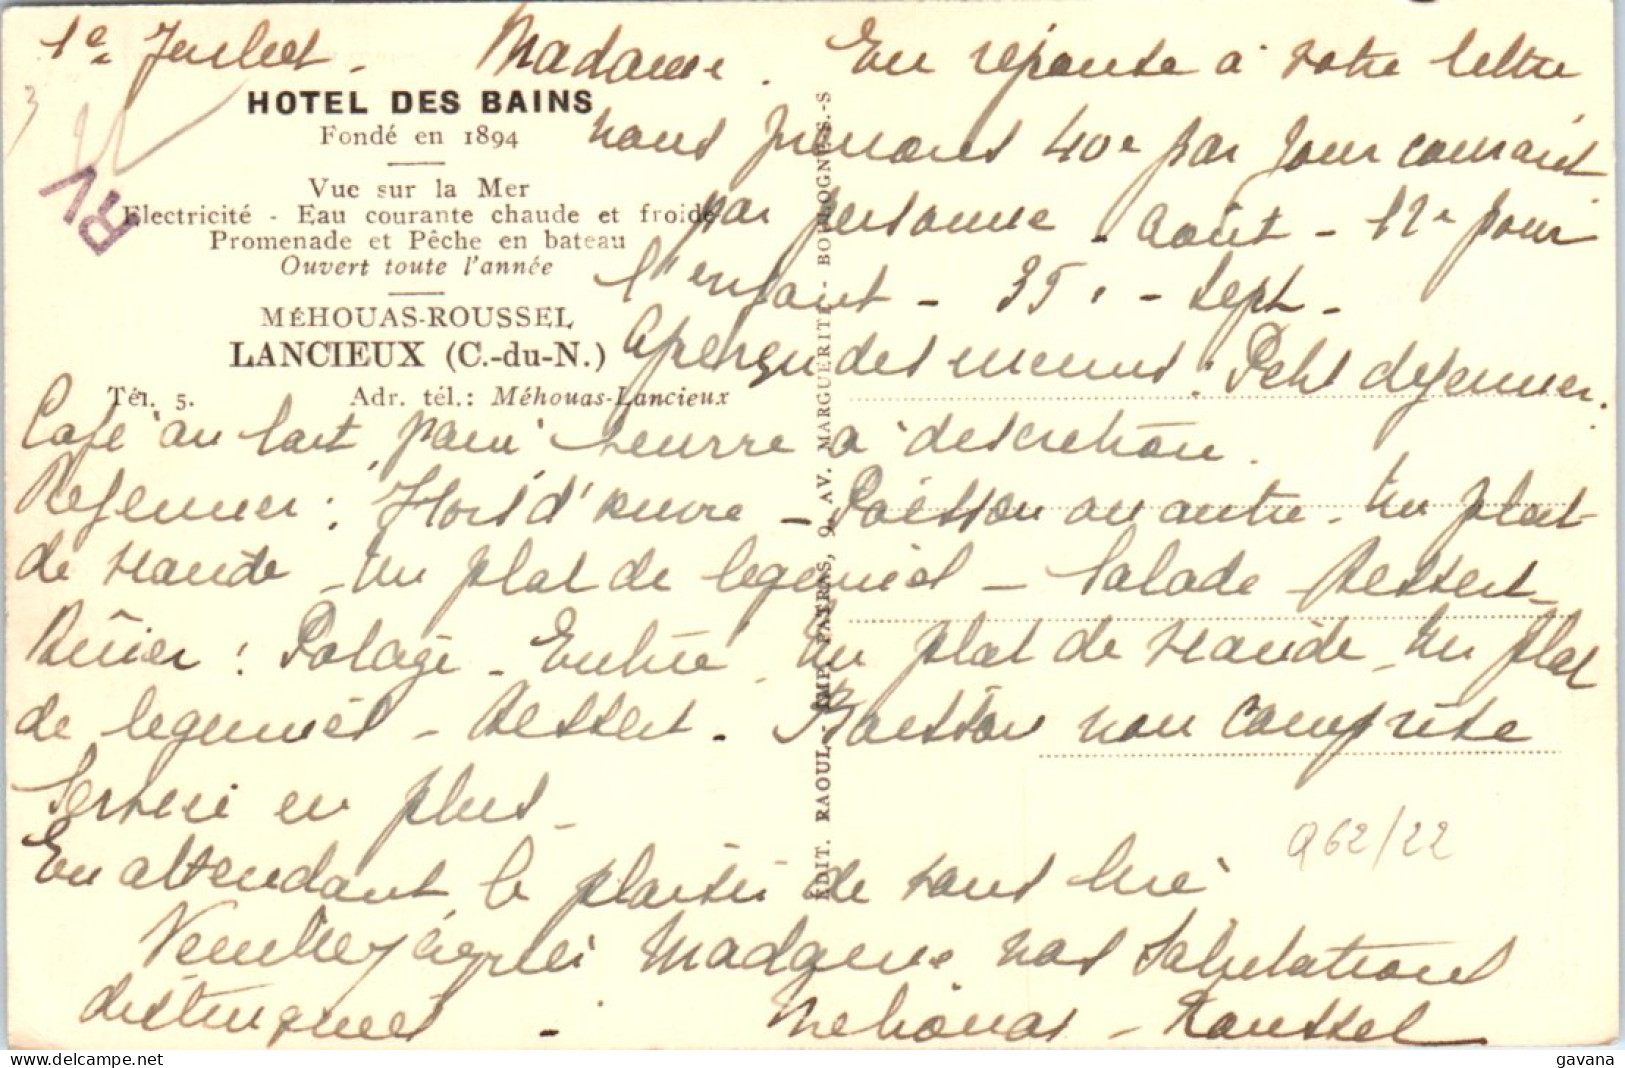 1e Juillet - Madame. En réponse à votre lettre
HOTEL DES BAINS
Fondé en 1894
nous prenons 40e par Jour courant
Vue sur la Mer
Electricité - Eau courante chaude et froide
par personne - Août - 12e pour
Promenade et Pêche en bateau
Ouvert toute l'année
l'enfant - 35. - Sept -
MÉHOUAS-ROUSSEL
LANCIEUX (C.-du-N.)
Aperçu des menus : Petit dejeuner.
Tél. 5. Adr. tél.: Méhouas-Lancieux
Café au lait, pain beurre à discretion.
Dejeuner : Hors d'œuvre - Poisson ou autre - Un plat
de viande - Un plat de legumes - Salade - Dessert -
Dîner : Potage - Entrée - Un plat de viande - Un plat
de legumes - Dessert - Boisson non comprise
Service en plus -
En attendant le plaisir de vous lire
Veuillez agréer Madame nos Salutations
distinguées -
Mehouas - Roussel
RV
ÉDIT. RAOUL - IMP. PATRAS, 9, AV. MARGUERITE - BOULOGNE-S.-S
Q62/22
gavana